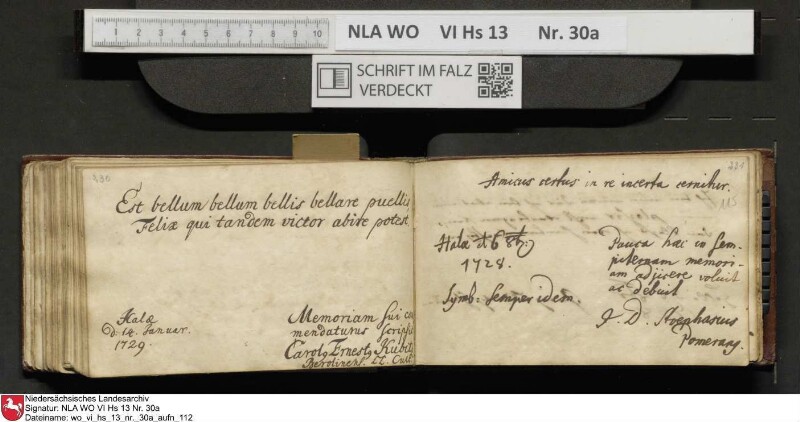 1 2 3 4 5 6 7 8 9 10
NLA WO VI Hs 13 Nr. 30a
SCHRIFT IM FALZ
VERDECKT
230
Est bellum bellum bellis bellare puellis
Felix qui tandem victor abire potest
Halæ
d. 14. Januar.
1729.
Memoriam sui co
mendaturus scripsi
Carolg Ernestg Kubit
Berolinens. LL. Cult
231
115
Amicus certus in re incerta cernitur.
Halæ d. 6
1728.
Symb: Semper idem.
Pauca hæc in sem-
piternam memori-
am adjicere voluit
ac debuit
J. D.
Pomerang.
Niedersächsisches Landesarchiv
Signatur: NLA WO VI Hs 13 Nr. 30a
Dateiname: wo_vi_hs_13_nr._30a_aufn_112